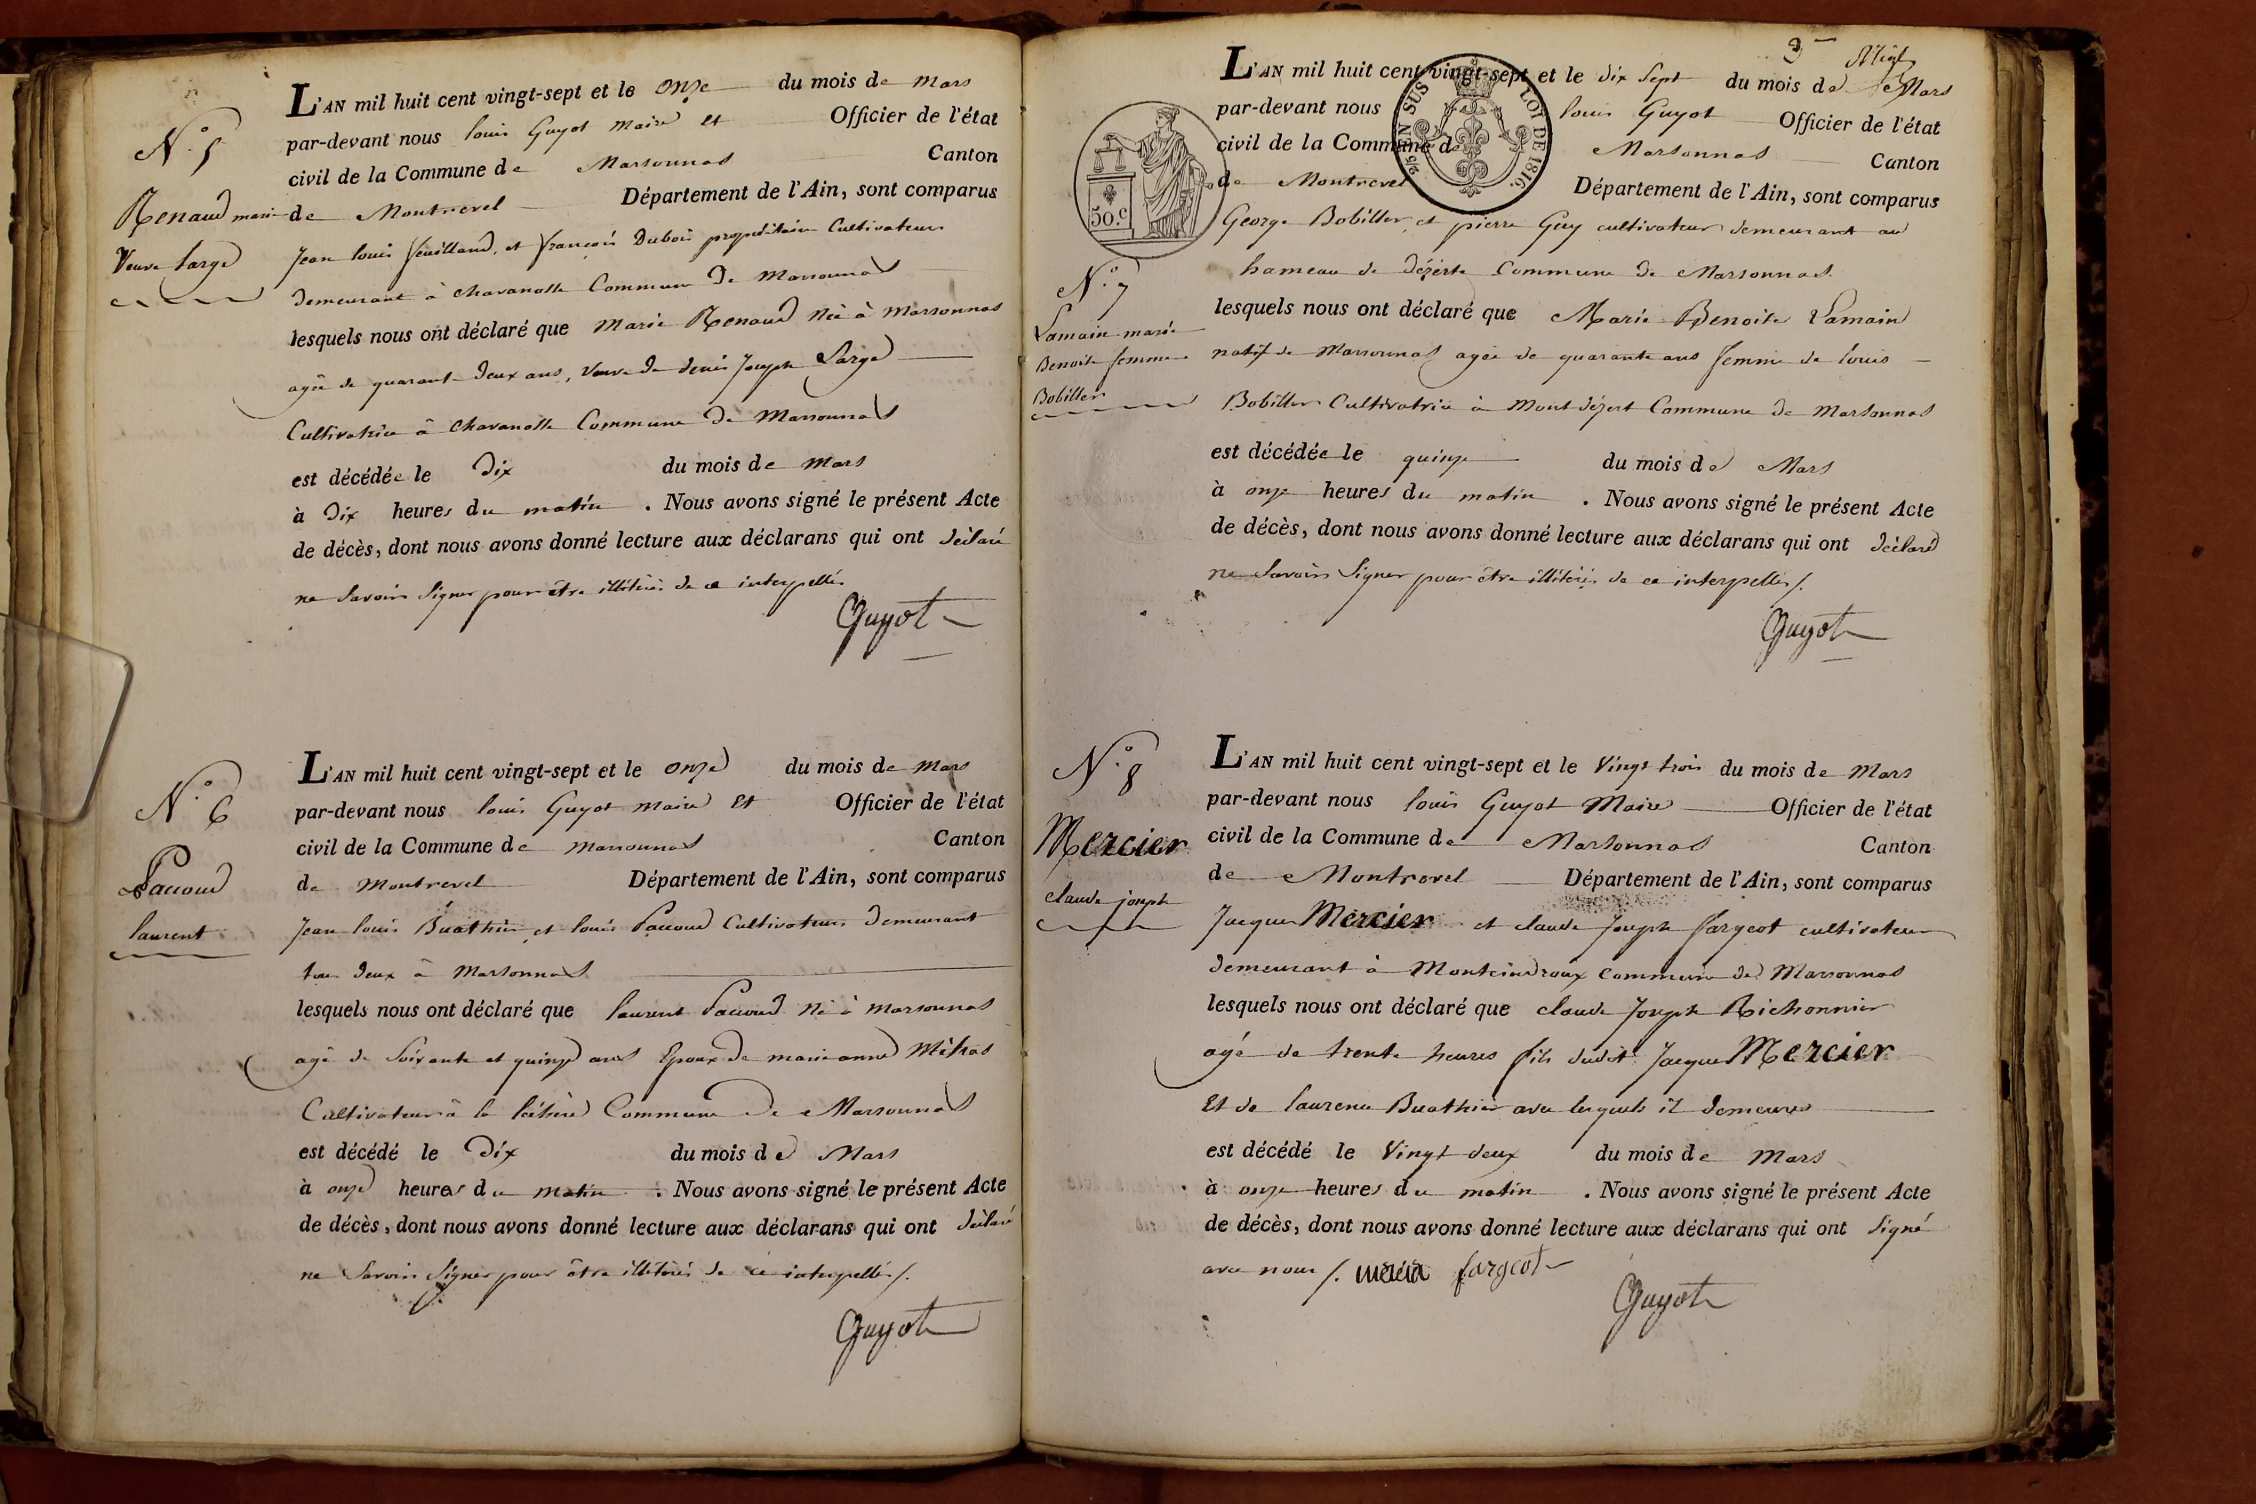 N.° 5
Renaud marie
Veuve Large
L'AN mil huit cent vingt-sept et le onze du mois de mars
par-devant nous louis Guyot maire et Officier de l'état
civil de la Commune de Marsonnas Canton
de Montrevel Département de l'Ain, sont comparus
Jean louis feuilland, et françois Dubois propriétaire Cultivateurs
demeurant à chavanosse Commune De marsonnas
lesquels nous ont déclaré que marie Renaud Née à marsonnas
agée de quarante deux ans, veuve de denis Joseph Large
Cultivatrice à chavanosse Commune De Marsonnas
est décédée le Dix du mois de mars
à Dix heures du matin . Nous avons signé le présent Acte
de décès, dont nous avons donné lecture aux déclarans qui ont déclaré
ne savoir signer pour être illitérés de ce interpellés
Guyot
N.° 6
Pacoud
laurent
L'AN mil huit cent vingt-sept et le onze du mois de mars
par-devant nous louis Guyot maire Et Officier de l'état
civil de la Commune de marsonnas Canton
de montrevel Département de l'Ain, sont comparus
Jean louis Buathier et louis Pacoud Cultivateurs demeurant
tou deux à Marsonnas
lesquels nous ont déclaré que laurent Pacoud Né à marsonnas
agé de soixante et quinze ans Epoux de marie anne Mitras
Cultivateur à la Commune De Marsonnas
est décédé le Dix du mois de Mars
à onze heures du matin . Nous avons signé le présent Acte
de décès, dont nous avons donné lecture aux déclarans qui ont déclaré
ne savoir signer pour être illitérés de ce interpellés /.
Guyot
3
L'AN mil huit cent vingt-sept et le dix sept du mois de Mars
par-devant nous louis Guyot Officier de l'état
civil de la Commune de Marsonnas Canton
de Montrevel Département de l'Ain, sont comparus
EN SUS LOI DE 1816.
50.c
George Bobillon, et pierre Guy cultivateur demeurant au
hameau de dézerte commune de Marsonnas
N.° 7
Lamain marie
Benoite femme
Bobillon
lesquels nous ont déclaré que Marie Benoite Lamain
natif de Marsonnas agée de quarante ans femme de louis
Bobillon Cultivatrice à Mont dézert Commune de Marsonnas
est décédée le quinze du mois de Mars
à onze heures du matin . Nous avons signé le présent Acte
de décès, dont nous avons donné lecture aux déclarans qui ont déclaré
ne savoir signer pour être illitérés de ce interpellés /.
Guyot
N.° 8
Mercier
claude joseph
L'AN mil huit cent vingt-sept et le Vingt trois du mois de Mars
par-devant nous louis Guyot Maire Officier de l'état
civil de la Commune de Marsonnas Canton
de Montrevel Département de l'Ain, sont comparus
Jacques Mercier et claude Joseph fargeot cultivateur
demeurant à Monteindroux commune de Marsonnas
lesquels nous ont déclaré que claude Joseph Richonnier
agé de trente heures fils dudit Jacque Mercier
Et de laurence Buathier avec lesquels il demeure
est décédé le Vingt deux du mois de Mars
à onze heures du matin . Nous avons signé le présent Acte
de décès, dont nous avons donné lecture aux déclarans qui ont signé
avec nous /. fargeot
Guyot